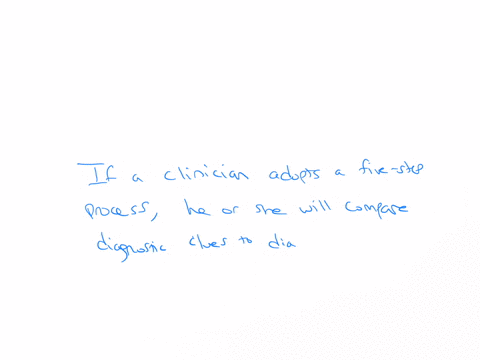 If a clinician adopts a five-step
process, he or she will compare
diagnostic clues to dia